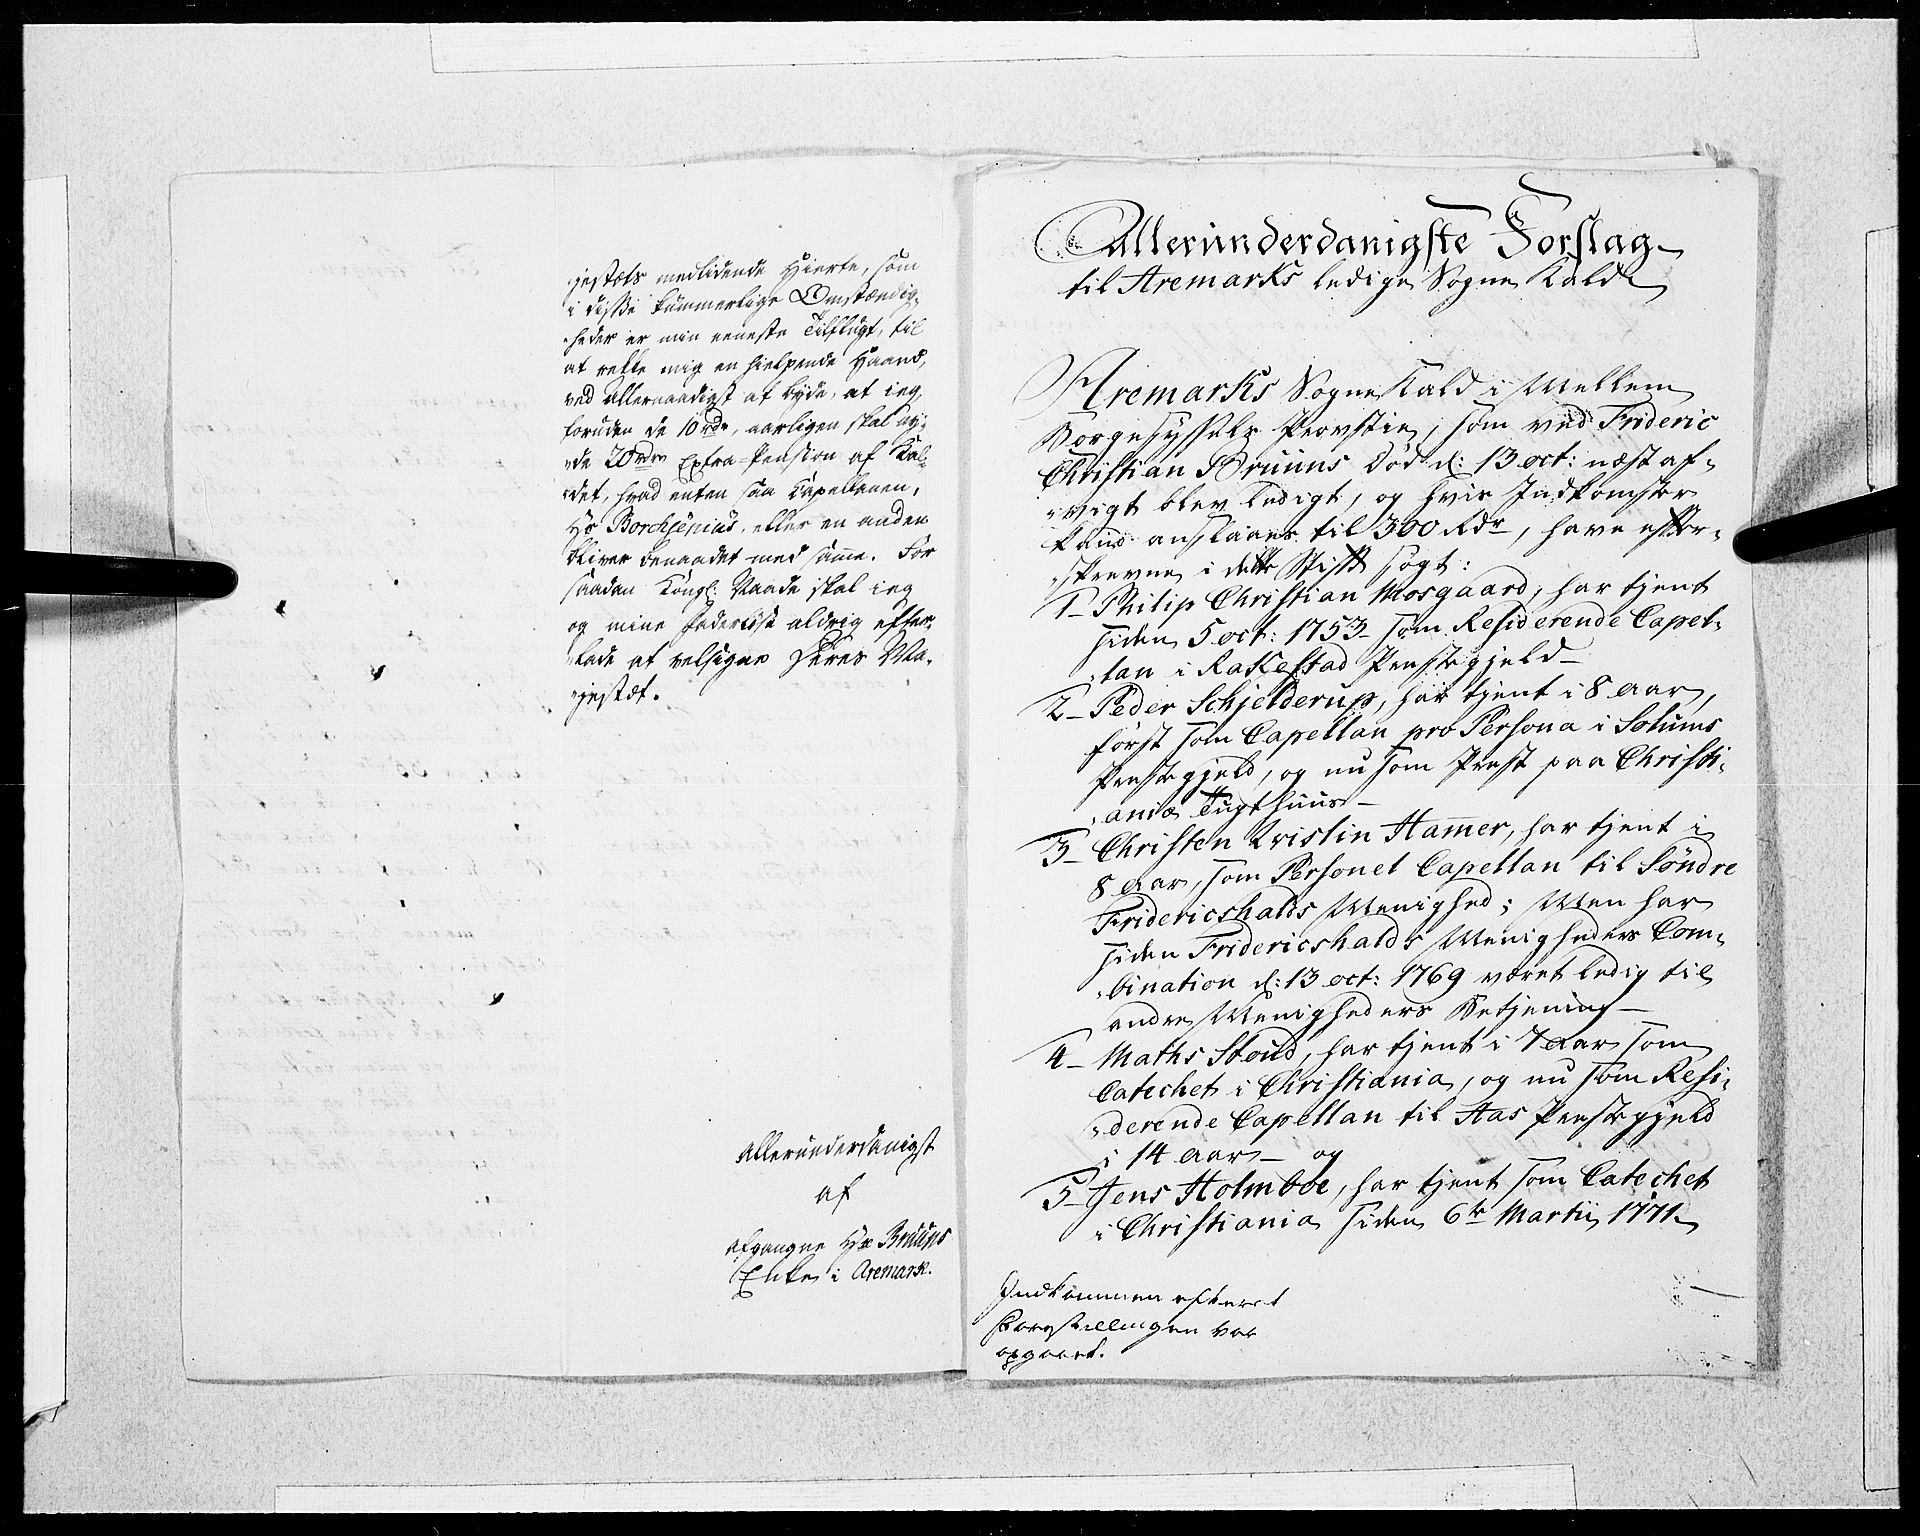 jestæts medlidende Hierte, som
i disse kummerlige Omstændig-
heder er min eeneste Tilflugt, til
at rekke mig en hielpende Haand,
ved allernaadigst at byde, at ieg,
foruden de 10 rdr, aarligen skal ny-
de 20 rdr Extra-Pension af Kal-
det, hvad enten saa Capellanen,
Hr Borchsenius, eller en anden
bliver benaadet med samme. For
saadan Kongl: Naade skal ieg
og mine Faderløse aldrig efter-
lade at velsigne Deres Ma-
jestæt.
Allerunderdanigst
af
afgangne Hr Bruuns
Enke i Aremark.
Allerunderdanigste Forslag
til Aremarks ledige Sogne Kald
Aremarks Sogne Kald i Mellem
Borgesyssels Provstie, som ved Frideric
Christian Bruuns Død d: 13 oct: næst af-
vigt blev ledigt, og hvis Indkomster
kand anslaaes til 300 Rdr, have efter-
skrevne i dette Stift søgt:
1- Philip Christian Mosgaard, har tjent
siden 5 oct: 1753 som Residerende Capel-
lan i Rakestad Præstegjeld-
2- Peder Schjelderup, har tjent i 8 aar,
først som Capellan pro Persona i Solums
Præstegjeld, og nu som Præst paa Christi-
aniæ Tugthuus-
3- Christen Qvislin Hamer, har tjent i
8 aar, som Personel Capellan til Søndre
Fridericshalds Menighed; Men har
siden Fridericshalds Menigheders Com-
bination d: 13 oct: 1769 været ledig til
andre Menigheders Betjening-
4- Maths Stoud, har tjent i 7 aar som
Catechet i Christiania, og nu som Resi-
derende Capellan til Aas Præstegjeld
i 14 aar- og
5- Jens Holmboe, har tjent som Catechet
i Christiania siden 6te Martii 1771-
Indkommen efterat
Forestillingen var
opgaaet.